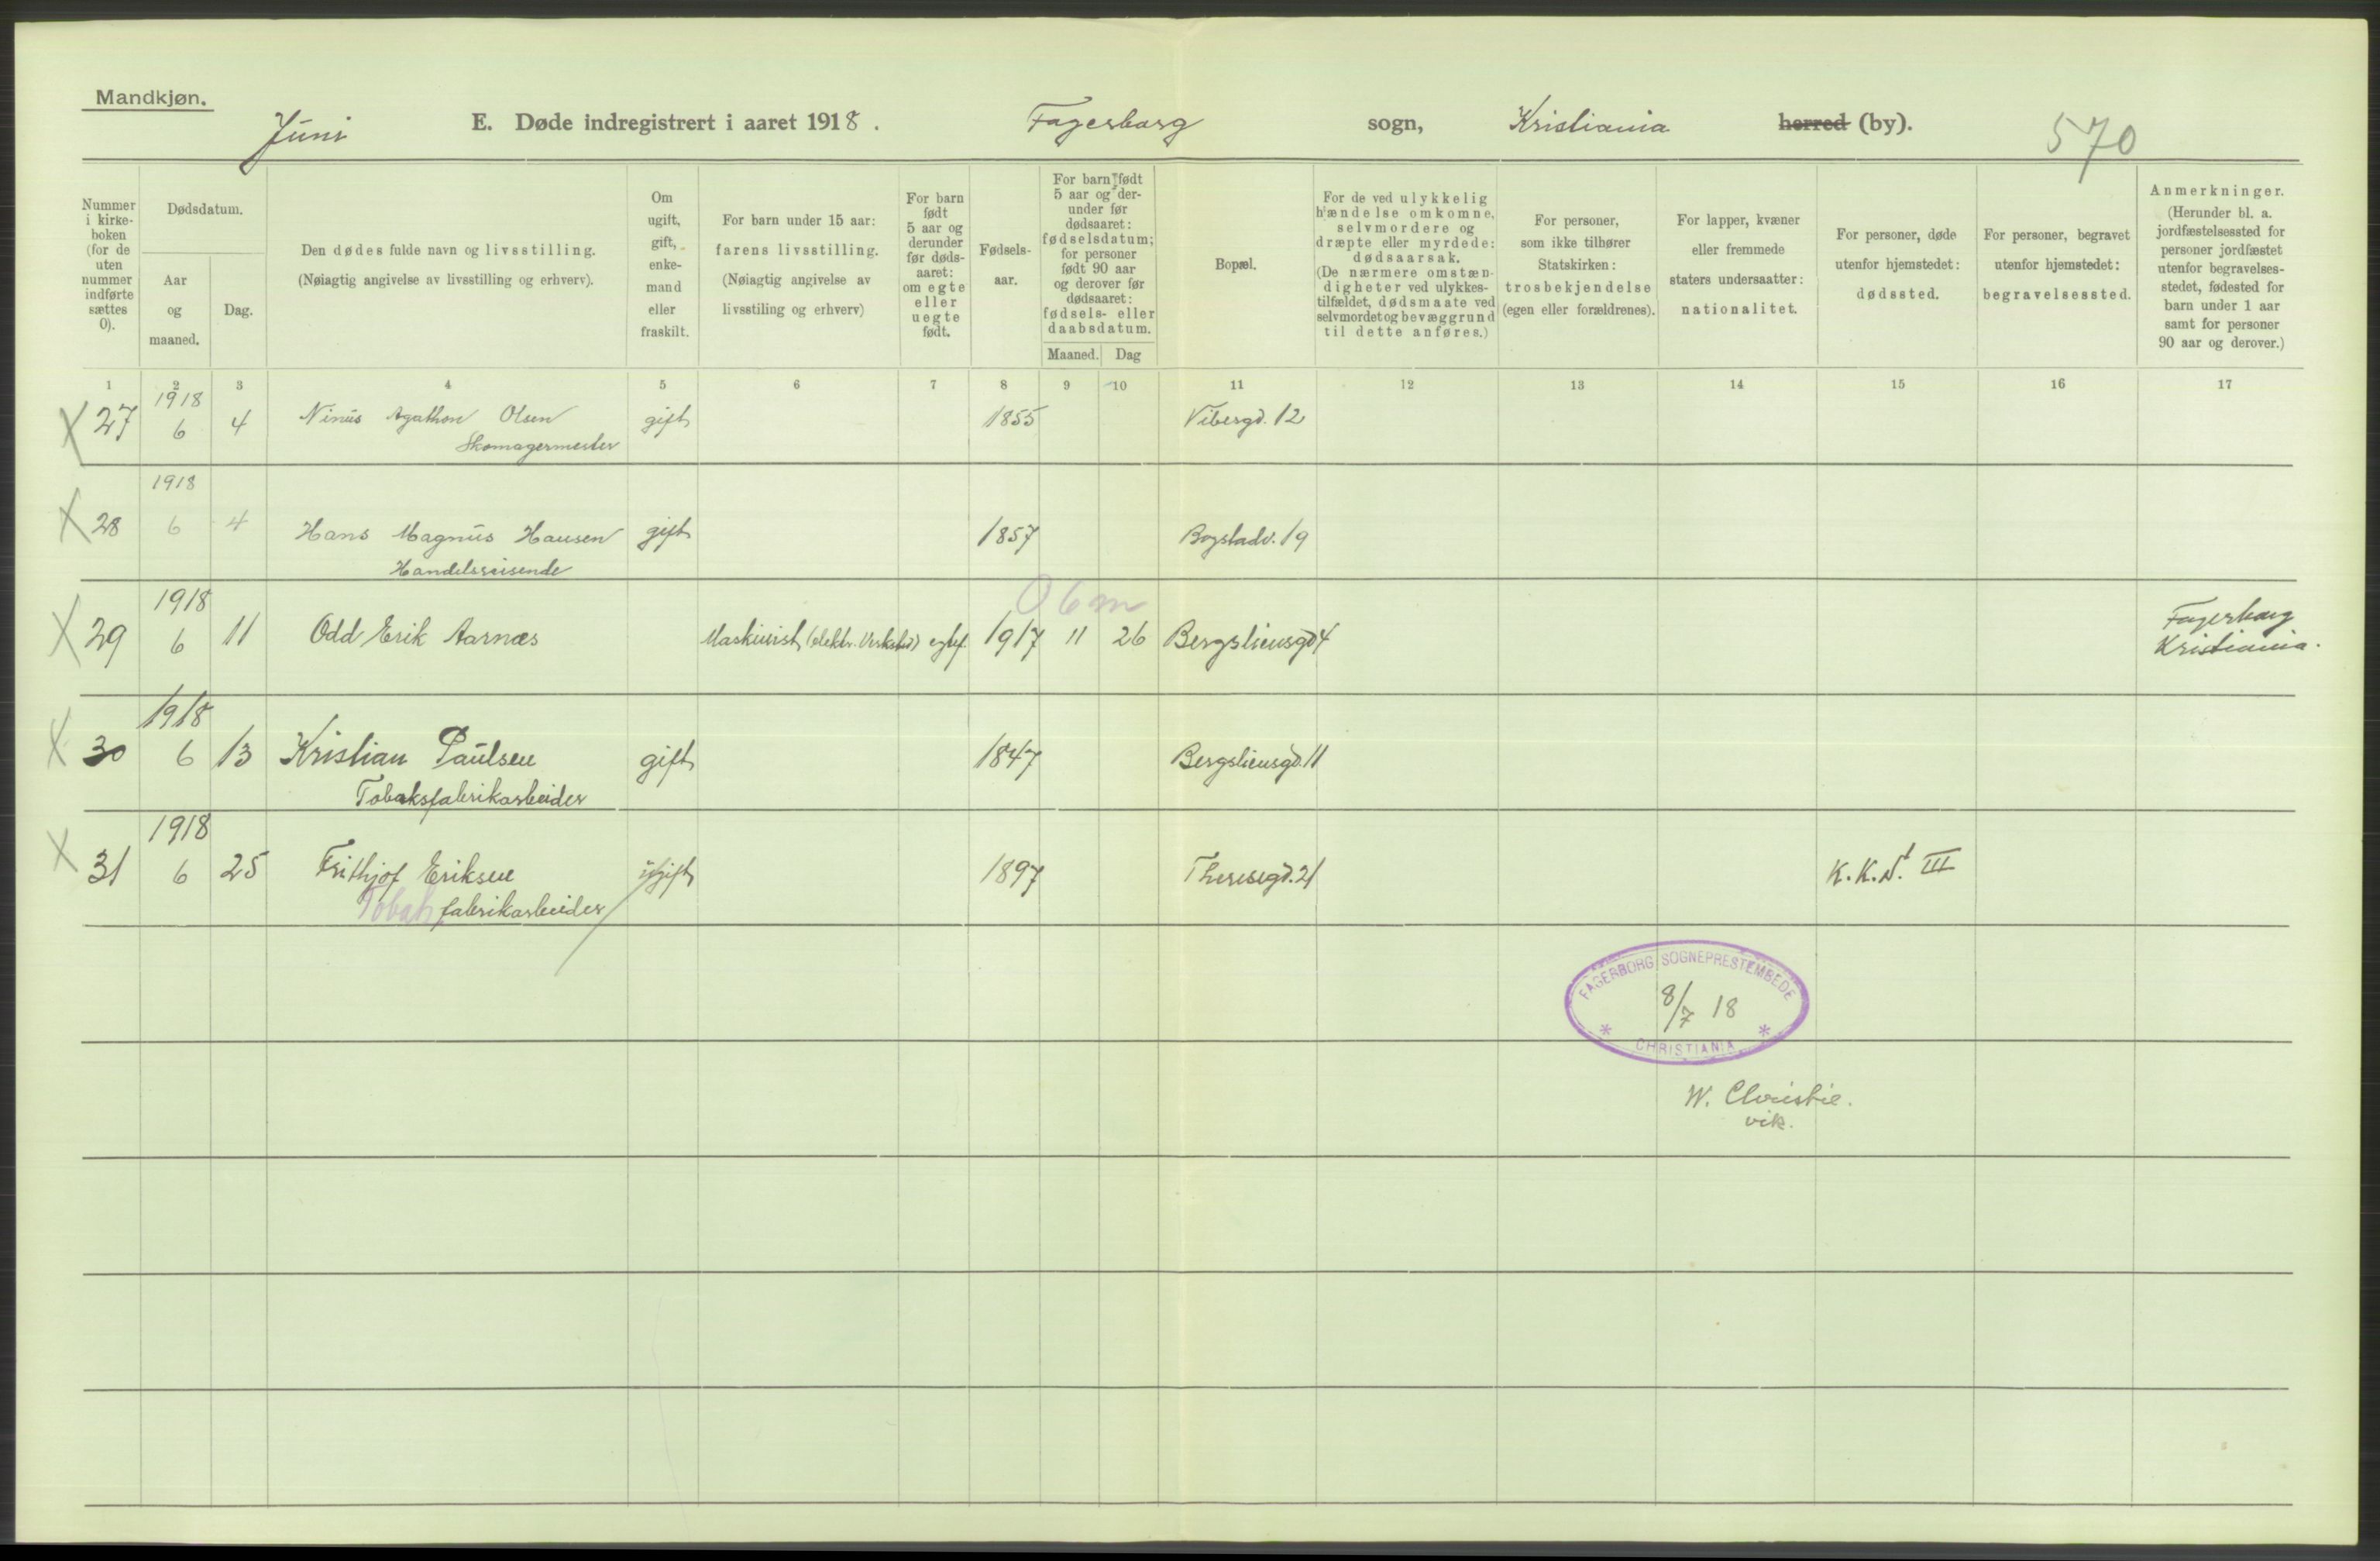 Mandkjøn.
Juni E. Døde indregistrert i aaret 1918. Fagerborg sogn, Kristiania herred (by). 570
Nummer i kirke-boken (for de uten nummer indførte sættes 0).
Dødsdatum.
Aar og maaned.
Dag.
Den dødes fulde navn og livsstilling.
(Nøiagtig angivelse av livsstilling og erhverv).
Om ugift, gift, enke-mand eller fraskilt.
For barn under 15 aar:
farens livsstilling.
(Nøiagtig angivelse av
livsstiling og erhverv)
For barn født 5 aar og derunder før døds-aaret: om egte eller uegte født.
Fødsels-aar.
For barn født 5 aar og der-under før dødsaaret: fødselsdatum; for personer født 90 aar og derover før dødsaaret: fødsels- eller daabsdatum.
Maaned. Dag
Bopæl.
For de ved ulykkelig hændelse omkomne, selvmordere og dræpte eller myrdede: dødsaarsak.
(De nærmere omstæn-digheter ved ulykkes-tilfældet, dødsmaate ved selvmordet og bevæggrund til dette anføres.)
For personer, som ikke tilhører Statskirken: trosbekjendelse (egen eller forældrenes).
For lapper, kvæner eller fremmede staters undersaatter: nationalitet.
For personer, døde utenfor hjemstedet: dødssted.
For personer, begravet utenfor hjemstedet: begravelsessted.
Anmerkninger.
(Herunder bl. a. jordfæstelsessted for personer jordfæstet utenfor begravelses-stedet, fødested for barn under 1 aar samt for personer 90 aar og derover.)
1 2 3 4 5 6 7 8 9 10 11 12 13 14 15 16 17
1918
X 27 6 4 Ninus Agathon Olsen gift 1855 Vibesgd. 12
Skomagermester
1918
X 28 6 4 Hans Magnus Hansen gift 1857 Bogstadv. 19
Handelsreisende
0 6 m
1918
X 29 6 11 Odd Erik Aarnæs Maskinist (elektr. Verksted) egtef. 1917 11 26 Bergsliensgd 4 Fagerborg
Kristiania.
1918
X 30 6 13 Kristian Paulsen gift 1847 Bergsliensgd. 11
Tobaksfabrikarbeider
1918
X 31 6 25 Frithjof Eriksen ugift 1897 Theresegd. 21 K.K.S. III
Tobak fabrikarbeider
FAGERBORG SOGNEPRESTEMBEDE
8/7 18
* CHRISTIANIA *
W. Christie.
vik.